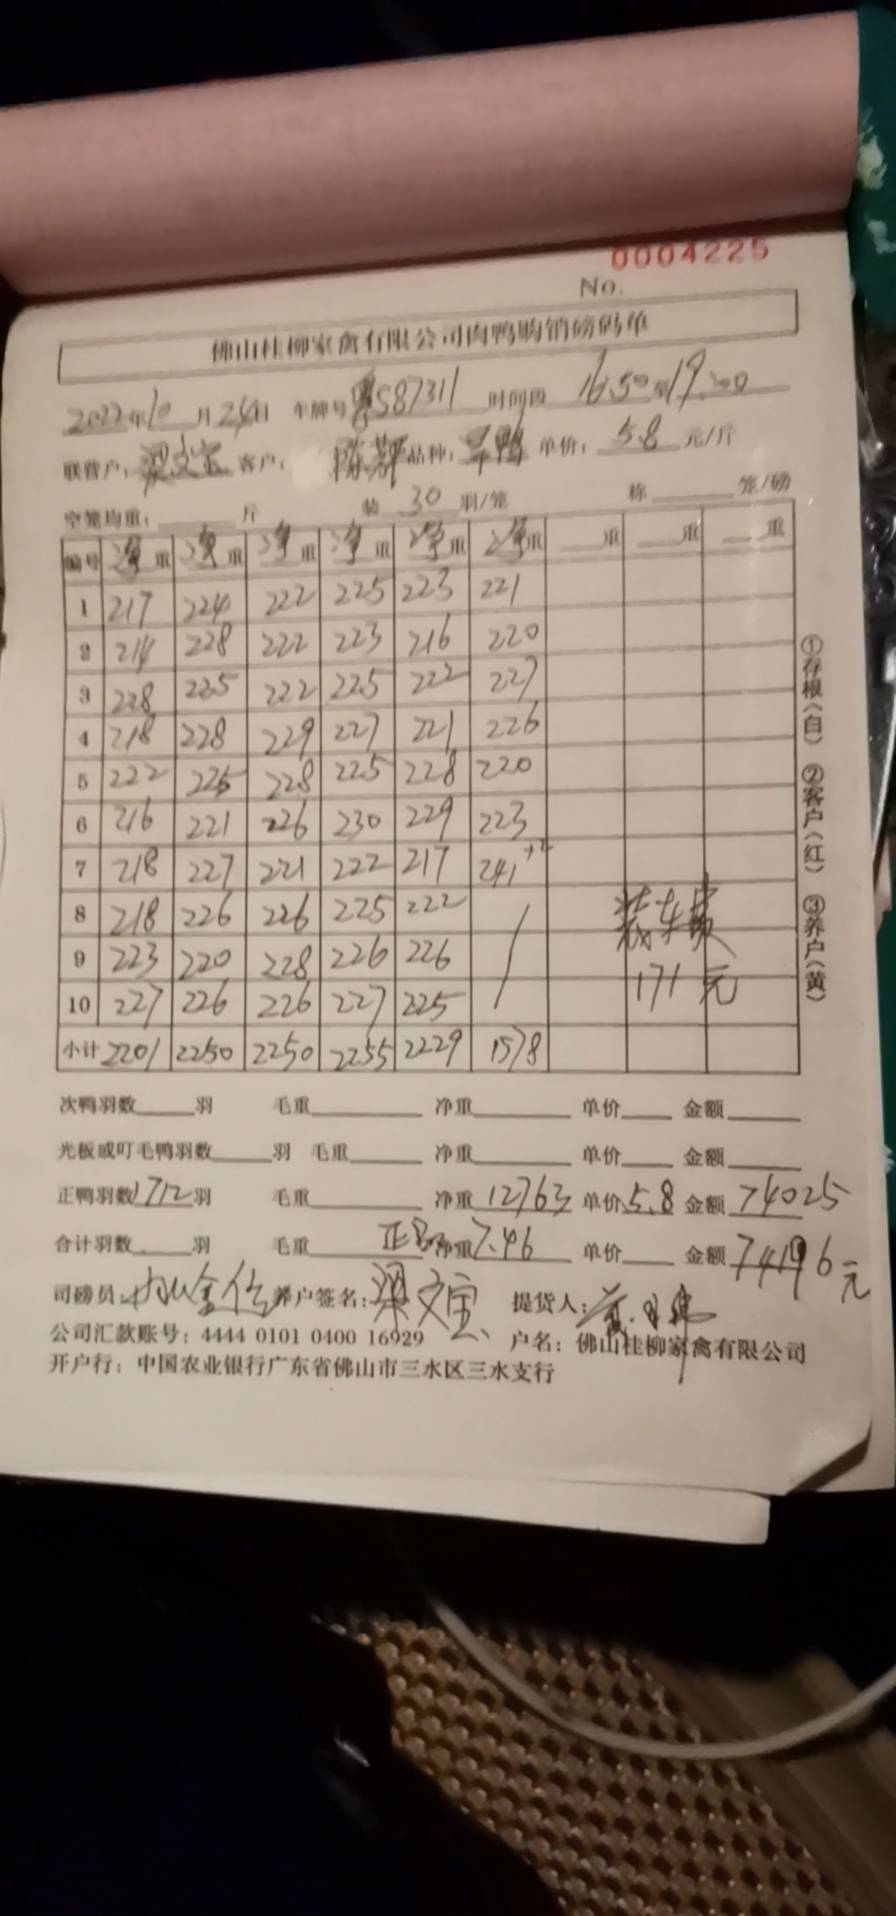 0004225
No.
佛山桂柳家禽有限公司肉鸭购销磅码单
2022年10月24日 车牌号 S87311 时间段 16:50至19:20
联营户：梁文宝 客户： 陈 品种： 鸭 单价： 5.8 元/斤
空笼均重： 斤 装 30 羽/笼 称 笼/磅
编号 净重 净重 净重 净重 净重 净重 重 重 重
1 217 224 222 225 223 221
2 214 228 222 223 216 220
3 228 225 222 225 222 227
4 218 228 229 227 221 226
5 222 225 228 225 228 220
6 216 221 226 230 229 223
7 218 227 221 222 217 241 +12
8 218 226 226 225 222 装车费
9 223 220 228 226 226
10 227 226 226 227 225 171元
小计 2201 2250 2250 2255 2229 1578
①存根（白） ②客户（红） ③养户（黄）
次鸭羽数 羽 毛重 净重 单价 金额
光板或叮毛鸭羽数 羽 毛重 净重 单价 金额
正鸭羽数1712羽 毛重 净重 12763 单价5.8 金额 74025
合计羽数 羽 毛重 正 净重 7.46 单价 金额 74196元
司磅员： 养户签名：梁文宝 提货人：
公司汇款账号：4444 0101 0400 16929 户名：佛山桂柳家禽有限公司
开户行：中国农业银行广东省佛山市三水区三水支行